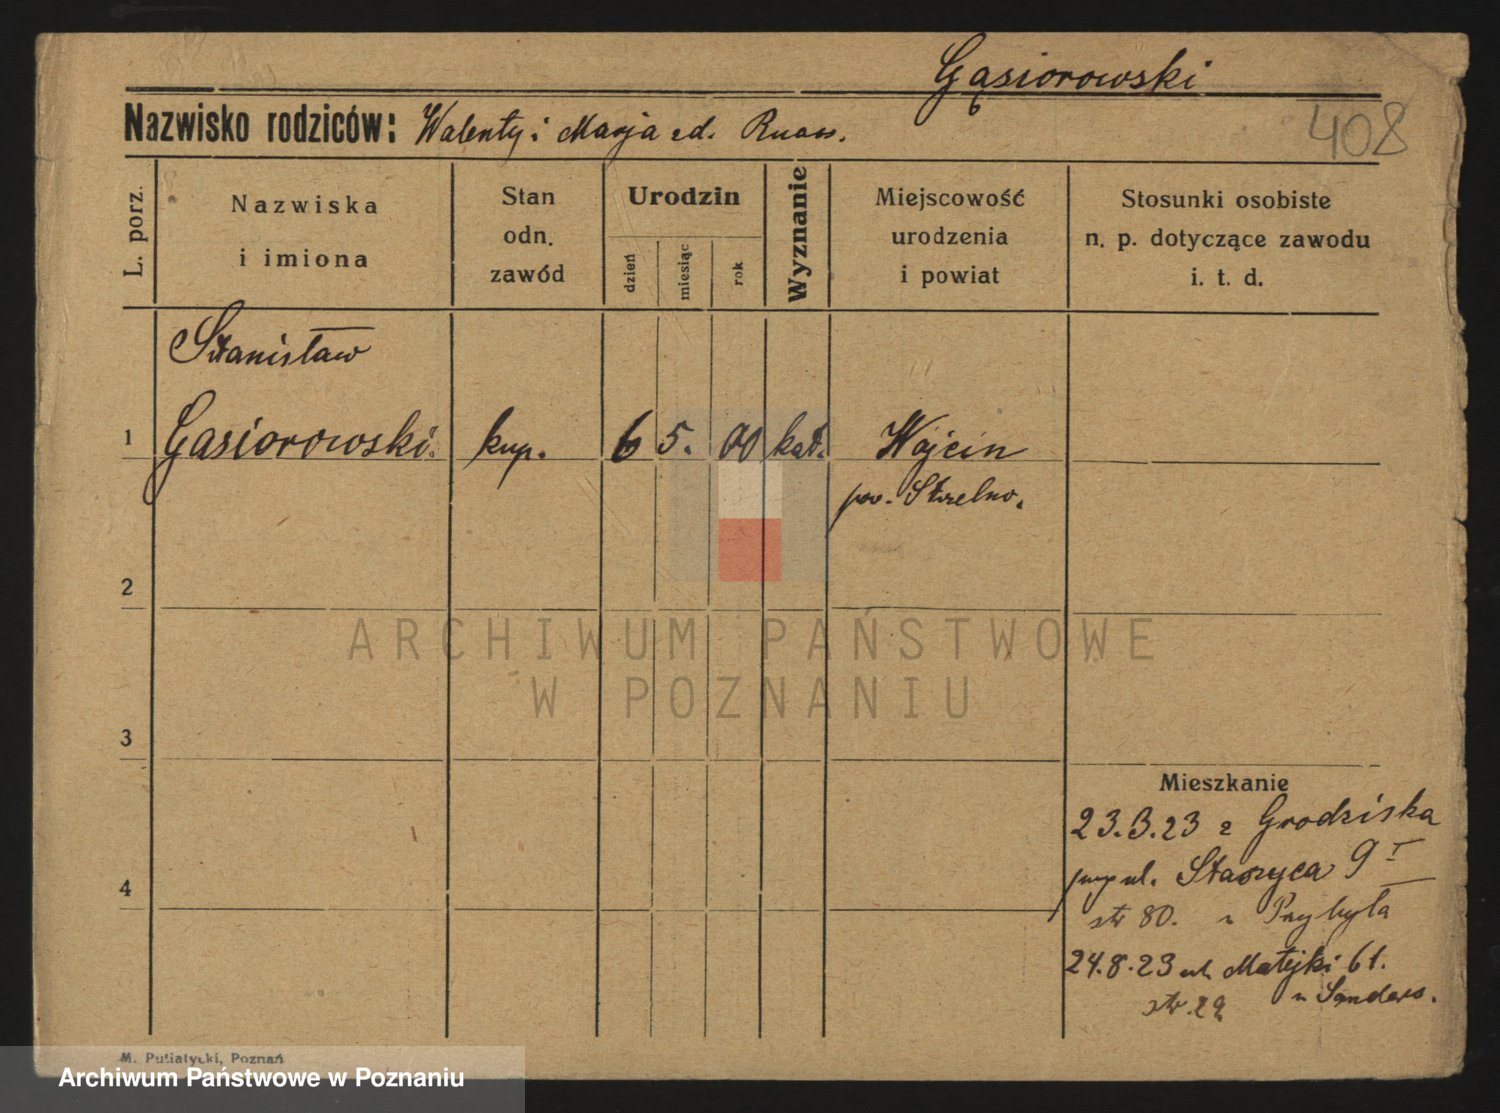 Gąsiorowski
408
Nazwisko rodziców: Walenty i Marja zd.
L. porz.
Nazwiska
i imiona
Stan
odn.
zawód
Urodzin
dzień
miesiąc
rok
Wyznanie
Miejscowość
urodzenia
i powiat
Stosunki osobiste
n. p. dotyczące zawodu
i. t. d.
Stanisław
1 Gąsiorowski. kup. 6 5. 00 kat. Wójcin
pow. Strzelno.
2
ARCHIWUM PAŃSTWOWE
W POZNANIU
3
Mieszkanie
23.3.23 z Grodziska
przy ul. Staszyca 9 I
4
str 80. u Przybyła
24.8.23 ul. Matejki 61.
u Sanders.
str. 29
M. Putiatycki, Poznań
Archiwum Państwowe w Poznaniu